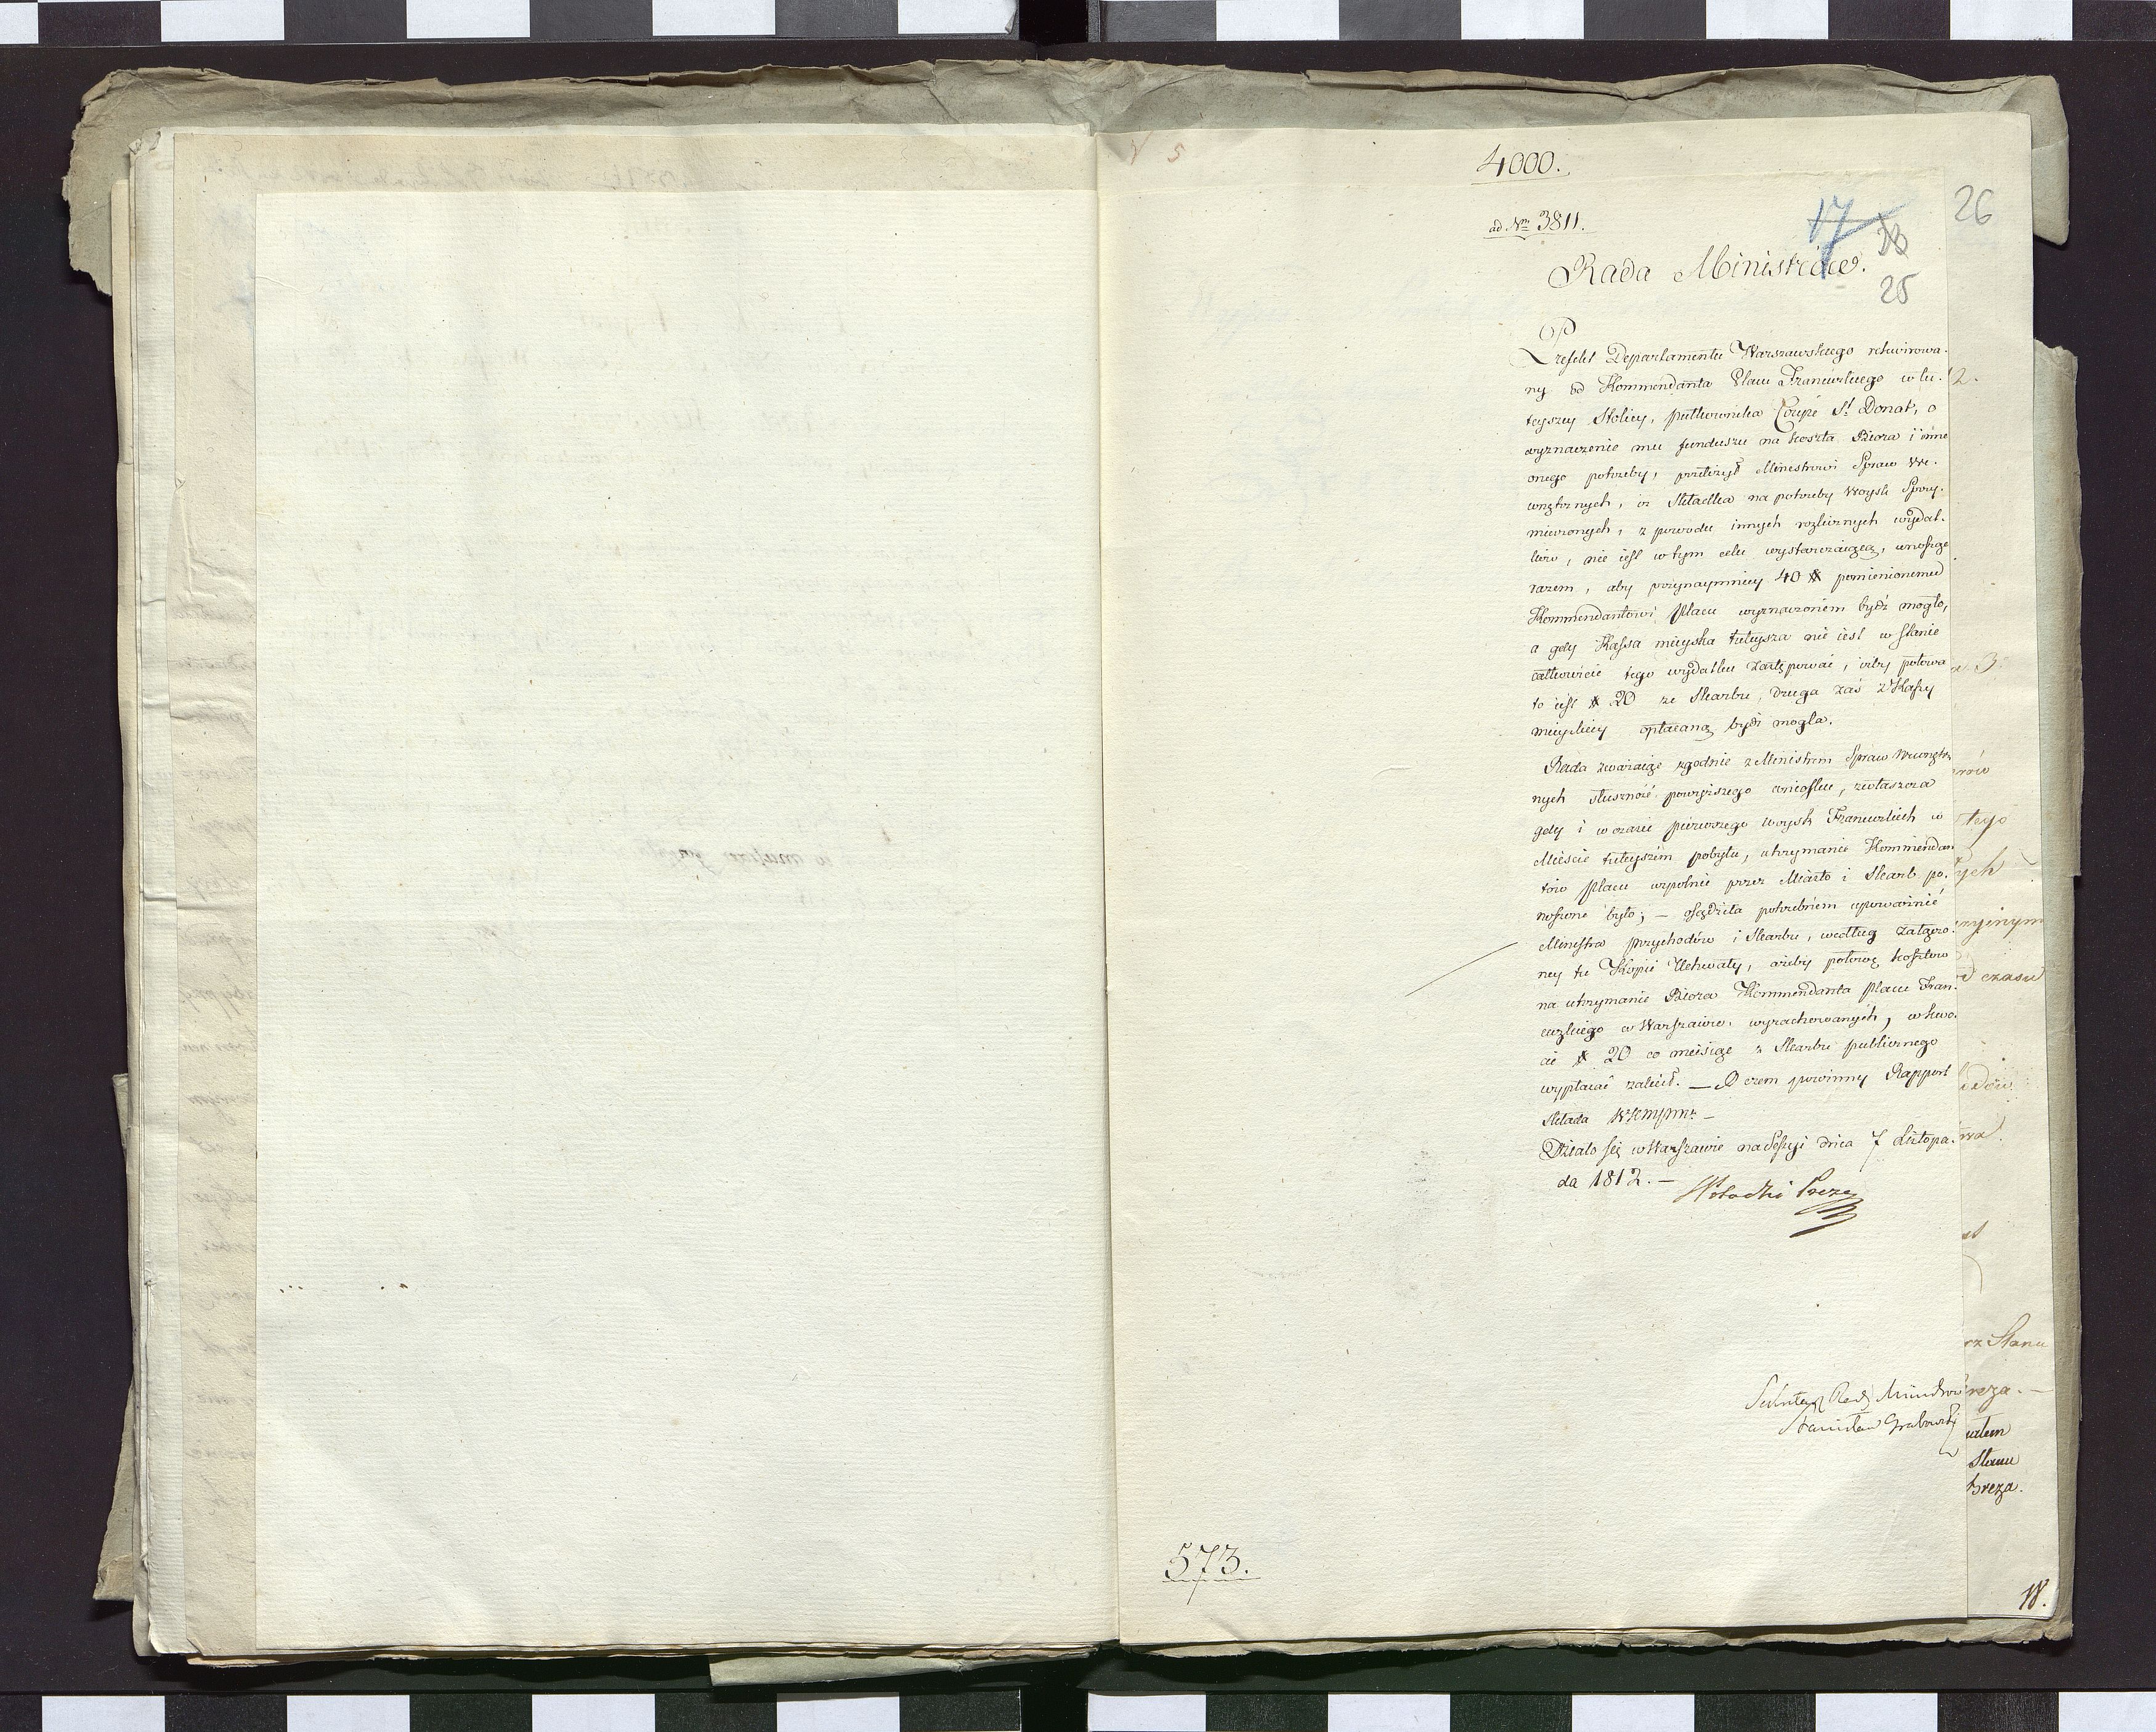 4000.
ad Nrm 3811.
17
26
25
Rada Ministrów.
Prefekt Departamentu Warszawskiego rekwirowa-
ny od Kommendanta Placu Francuzkiego w tu-
teyszey Stolicy, pułkownika Coupé St Donat, o
wyznaczenie mu funduszu na koszta Biora i inne
onego potrzeby, przełożył Ministrowi Spraw We-
wnętrznych, iż Składka na potrzeby Woysk Sprzy-
mierzonych, z powodu innych rozlicznych wydat-
ków, nie iest w tym celu wystarczaiącą, wnosząc
razem, aby przynaymniey 40 # pomienionemu
Kommendantowi Placu wyznaczonem bydź mogło,
a gdy Kassa mieyska tuteysza nie iest w stanie
całkowicie tego wydatku zastępować, iżby połowa
to iest # 20 ze Skarbu, druga zaś z Kassy
mieyskiey opłacaną bydź mogła.
Rada zważaiąc zgodnie z Ministrem Spraw Wewnętrz
nych słuszność powyższego wniosku, zwłaszcza
gdy i w czasie pierwszego woysk Francuzkich w
Mieście tuteyszem pobytu, utrzymanie Kommendan
tów placu wspolnie przez Miasto i Skarb po-
noszone było; — osądziła potrzebnem upoważnić
Ministra Przychodów i Skarbu, według załączo-
ney tu Kopii Uchwały, ażeby połowę kosztów
na utrzymanie Biora Kommendanta placu Fran-
cuzkiego w Warszawie wyrachowanych, w kwo-
cie # 20 co miesiąc z Skarbu publicznego
wypłacać zalecił. — O czem powinny Rapport
składa
Działo się w Warszawie na Sessyi dnia 7 Listopa-
da 1812. —
Potocki Prezes
Sekretarz Rady Ministrów
Stanisław Grabowski
573.
2.
3.
tego
ych
czasu
rz Stanu
reza. —
Stanu
Breza.
18.